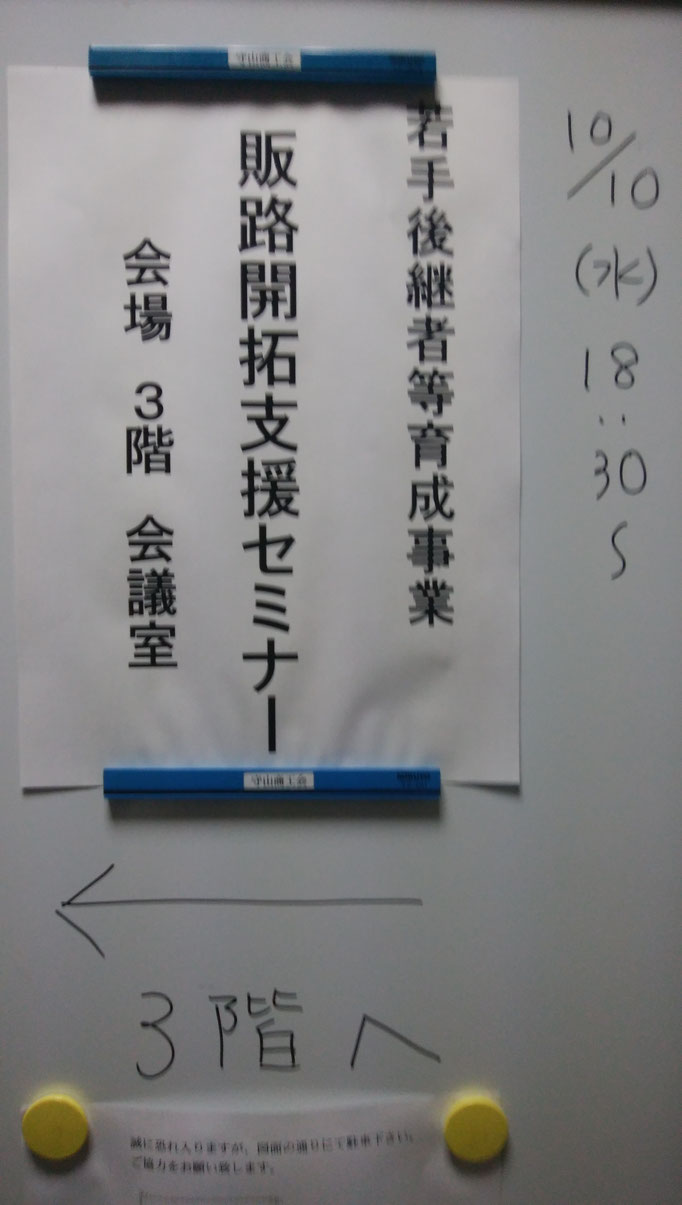 守山商工会
若手後継者等育成事業
販路開拓支援セミナー
会場 3階 会議室
守山商工会
10/10
(水)
18:30
~
←
3階へ
誠に恐れ入りますが、図面の通りにて駐車下さい。
ご協力をお願い致します。